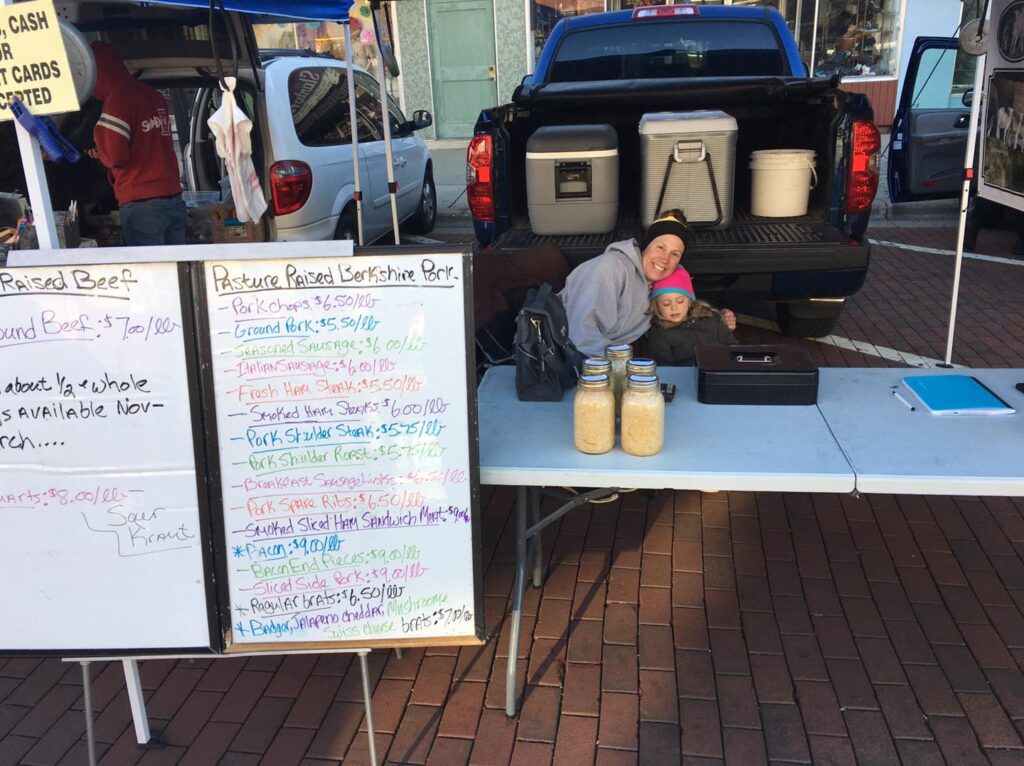 , CASH
OR
T CARDS
EPTED
Raised Beef
ound Beef: $7.00/lb
about 1/2 & whole
s available Nov-
rch....
uarts: $8.00/lb
Sour
Kraut
Pasture Raised Berkshire Pork
- Pork chops: $6.50/lb
- Ground Pork: $5.50/lb
- Seasoned Sausage: $6.00/lb
- Italian Sausage: $6.00/lb
- Fresh Ham Steak: $5.50/lb
- Smoked Ham Steaks: $6.00/lb
- Pork Shoulder Steak: $5.75/lb
- Pork Shoulder Roast: $5.75/lb
- Breakfast Sausage Links: $6.50/lb
- Pork Spare Ribs: $6.50/lb
- Smoked Sliced Ham Sandwich Meat: $9.00/lb
* Bacon: $9.00/lb
- Bacon End Pieces: $9.00/lb
- Sliced Side Pork: $9.00/lb
* Regular brats: $6.50/lb
* Badger, Jalapeno cheddar, Mushroome
Swiss cheese brats: $7.00/lb